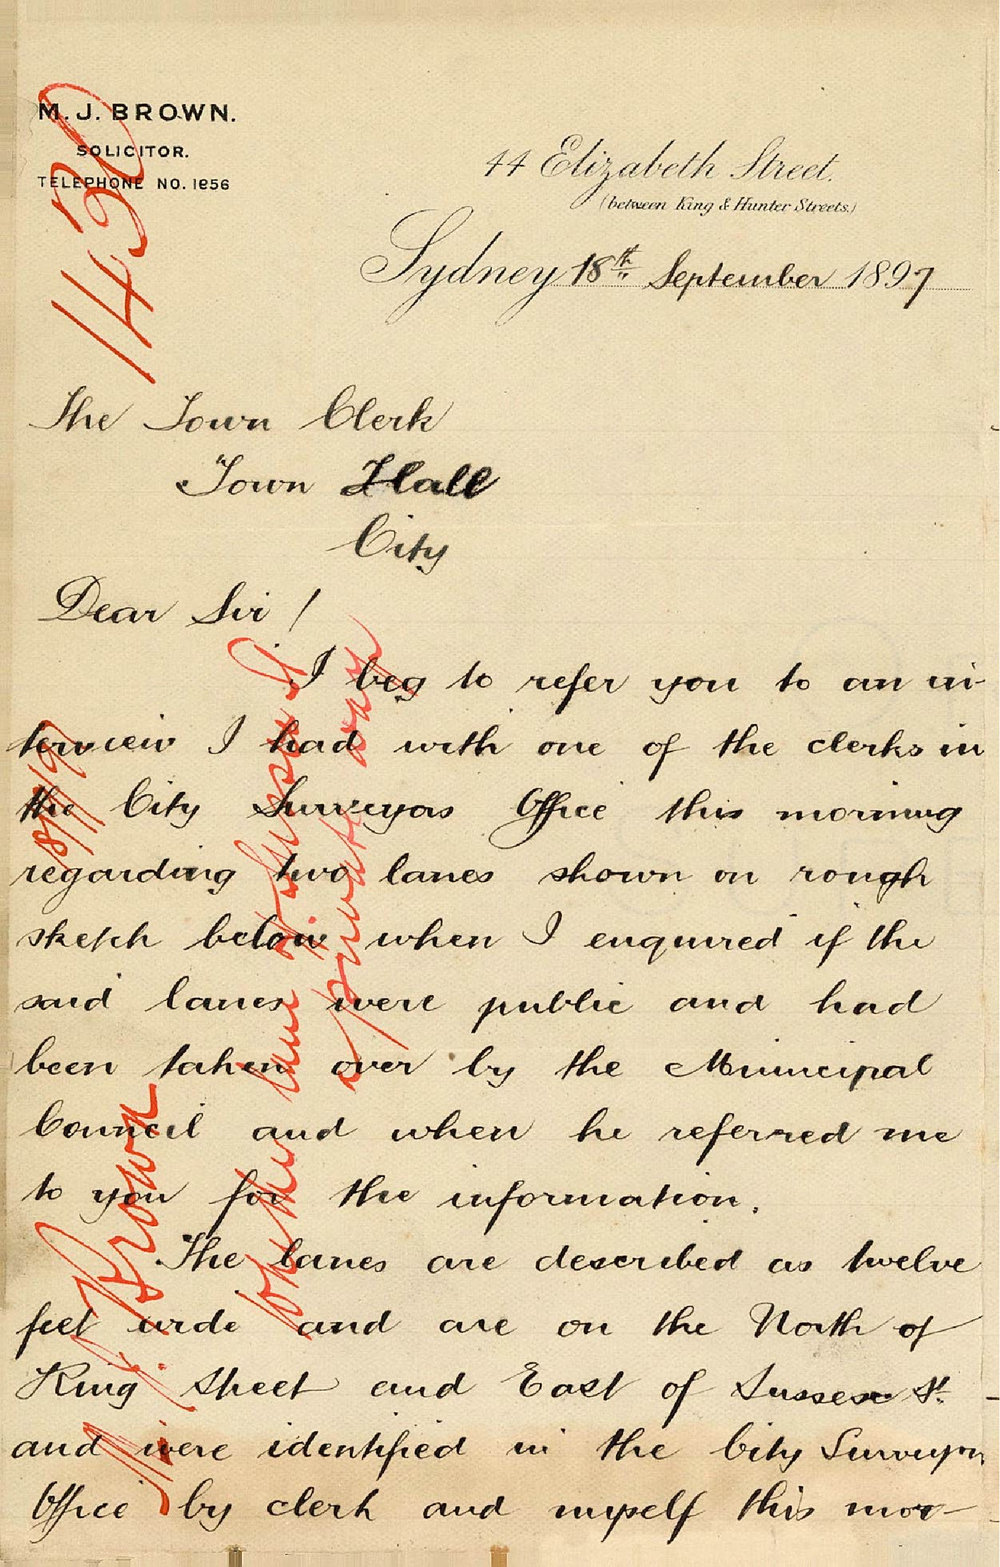 M. J. BROWN.
SOLICITOR.
TELEPHONE NO. 1856
44 Elizabeth Street.
(between King & Hunter Streets.)
Sydney 18th September 1897
1430
The Town Clerk
Town Hall
City
Dear Sir!
I beg to refer you to an in-
terview I had with one of the clerks in
the City Surveyors Office this morning
regarding two lanes shown on rough
sketch below when I enquired if the
said lanes were public and had
been taken over by the Municipal
Council and when he referred me
to you for the information.
The lanes are described as twelve
feet wide and are on the North of
King Street and East of Sussex St.
and were identified in the City Surveyors
Office by clerk and myself this mor-
M. J. Brown
whether lane off Sussex St
is private way